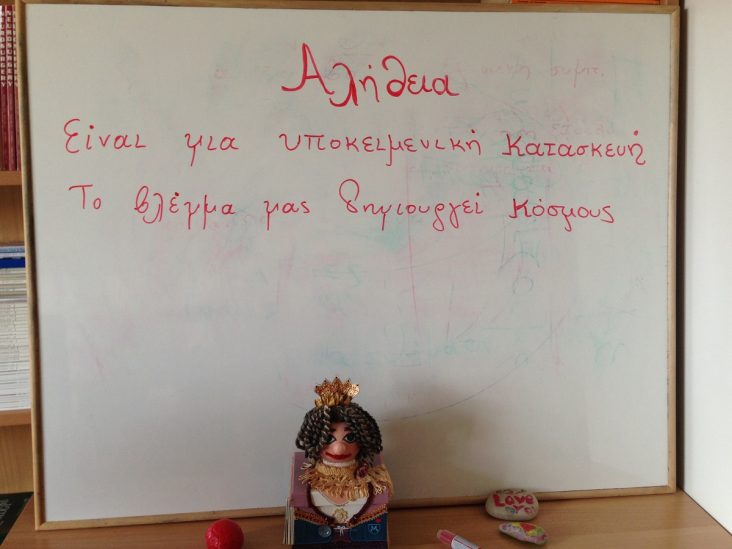 Αλήθεια
Είναι μια υποκειμενική κατασκευή
Το βλέμμα μας δημιουργεί κόσμους
NEUROSURGERY
Love